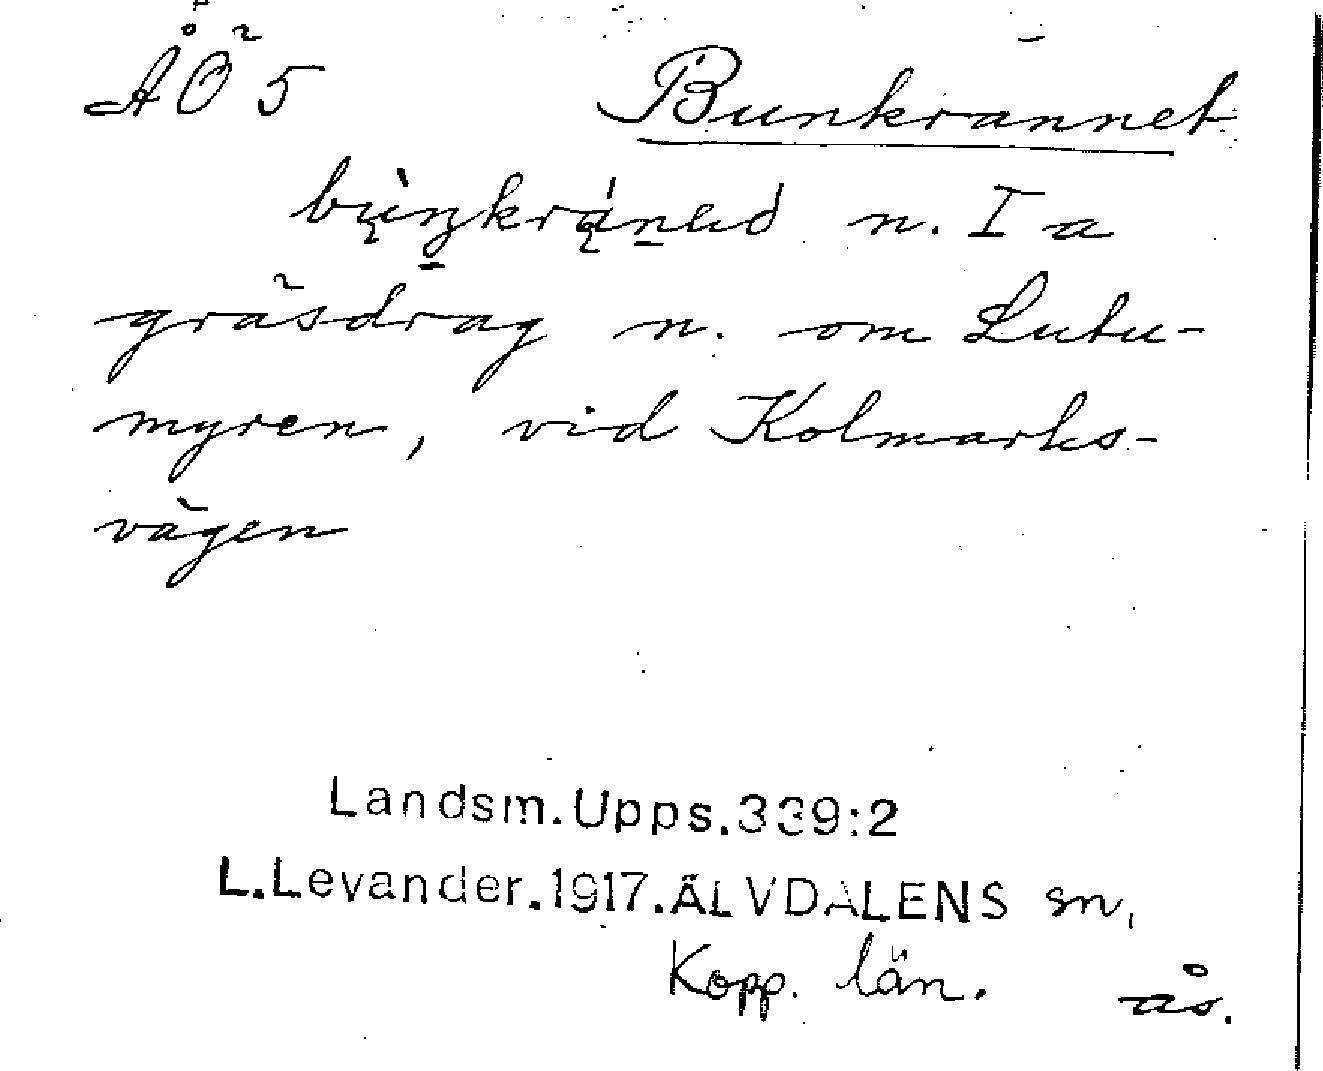 ÅÖ 5 Bunkrännet
n. I a
gräsdrag n. om Lutu-
myren, vid Kolmarks-
vägen
Landsm.Upps.339:2
L.Levander.1917.ÄLVDALENS sn,
Kopp. län. ås.